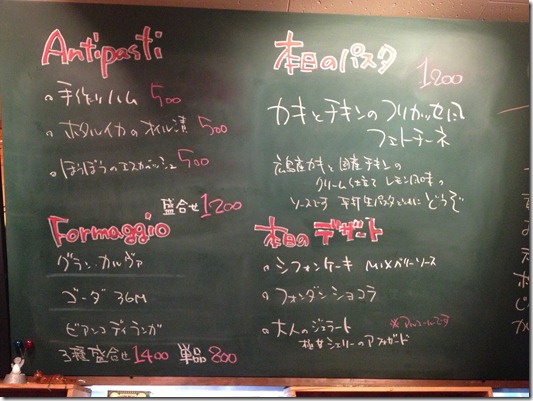 Antipasti
手作りハム 500
ホタルイカのオイル漬 500
ほうぼうのエスカベッシュ 500
盛合せ 1200
Formaggio
グラン・カルヴァ
ゴーダ 36M
ビアンコ ディ ランガ
3種盛合せ 1400 単品 800
本日のパスタ 1200
カキとチキンのフリカッセ
フェトチーネ
広島産カキと国産チキンの
クリーム仕立て レモン風味の
ソースです 平打生パスタといっしょに どうぞ
本日の デザート
シフォンケーキ MIXベリーソース
フォンダンショコラ
大人のジェラート ※アルコールです
極甘シェリーのアフォガード